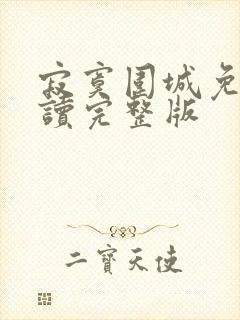 寂寞围城免
讀完整版
二寶天使